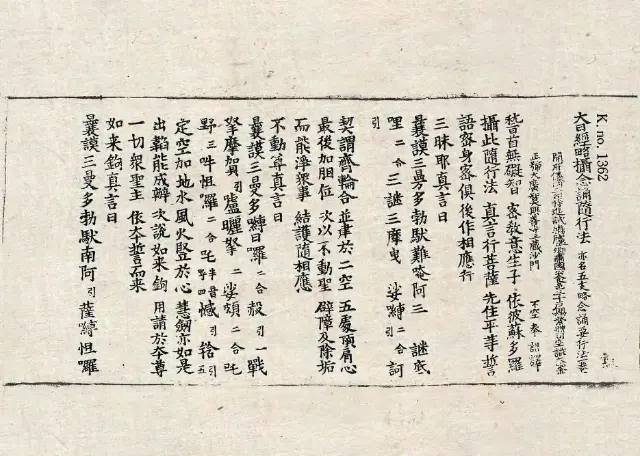 K. no. 1362
大日經略攝念誦隨行法 亦名五支略念誦要行法 竪
開府儀同三司特進試鴻臚卿肅國公食邑三千戶賜紫贈司空謚大鑒
正號大廣智大興善寺三藏沙門 不空 奉 詔譯
稽首無礙智 密教意生子 依彼蘇多羅
攝此隨行法 真言行菩薩 先住平等誓
語密身密俱 後作相應行
三昧耶真言曰
曩謨三曼多勃馱難唵阿三 謎底
哩 二合 三謎三摩曳 娑嚩 二合 訶
引
契謂齊輪合 並建於二空 五處頂肩心
最後加咽位 次以不動聖 辟障及除垢
而能淨衆事 結護隨相應
不動尊真言曰
曩謨三曼多嚩日囉 二合 赧 引 一 戰
拏摩賀 引 嚧曬拏 二 娑頗 二合 吒
野 三 吽怛囉 二合 吒 半音 呼四 憾 引 𤚥 引 五
定空加地水 風火竪於心 慧劍亦如是
出鞘能成辦 次說如來鉤 用請於本尊
一切衆聖主 依本誓而來
如來鉤真言曰
曩謨三曼多勃馱南阿 引 薩嚩怛囉